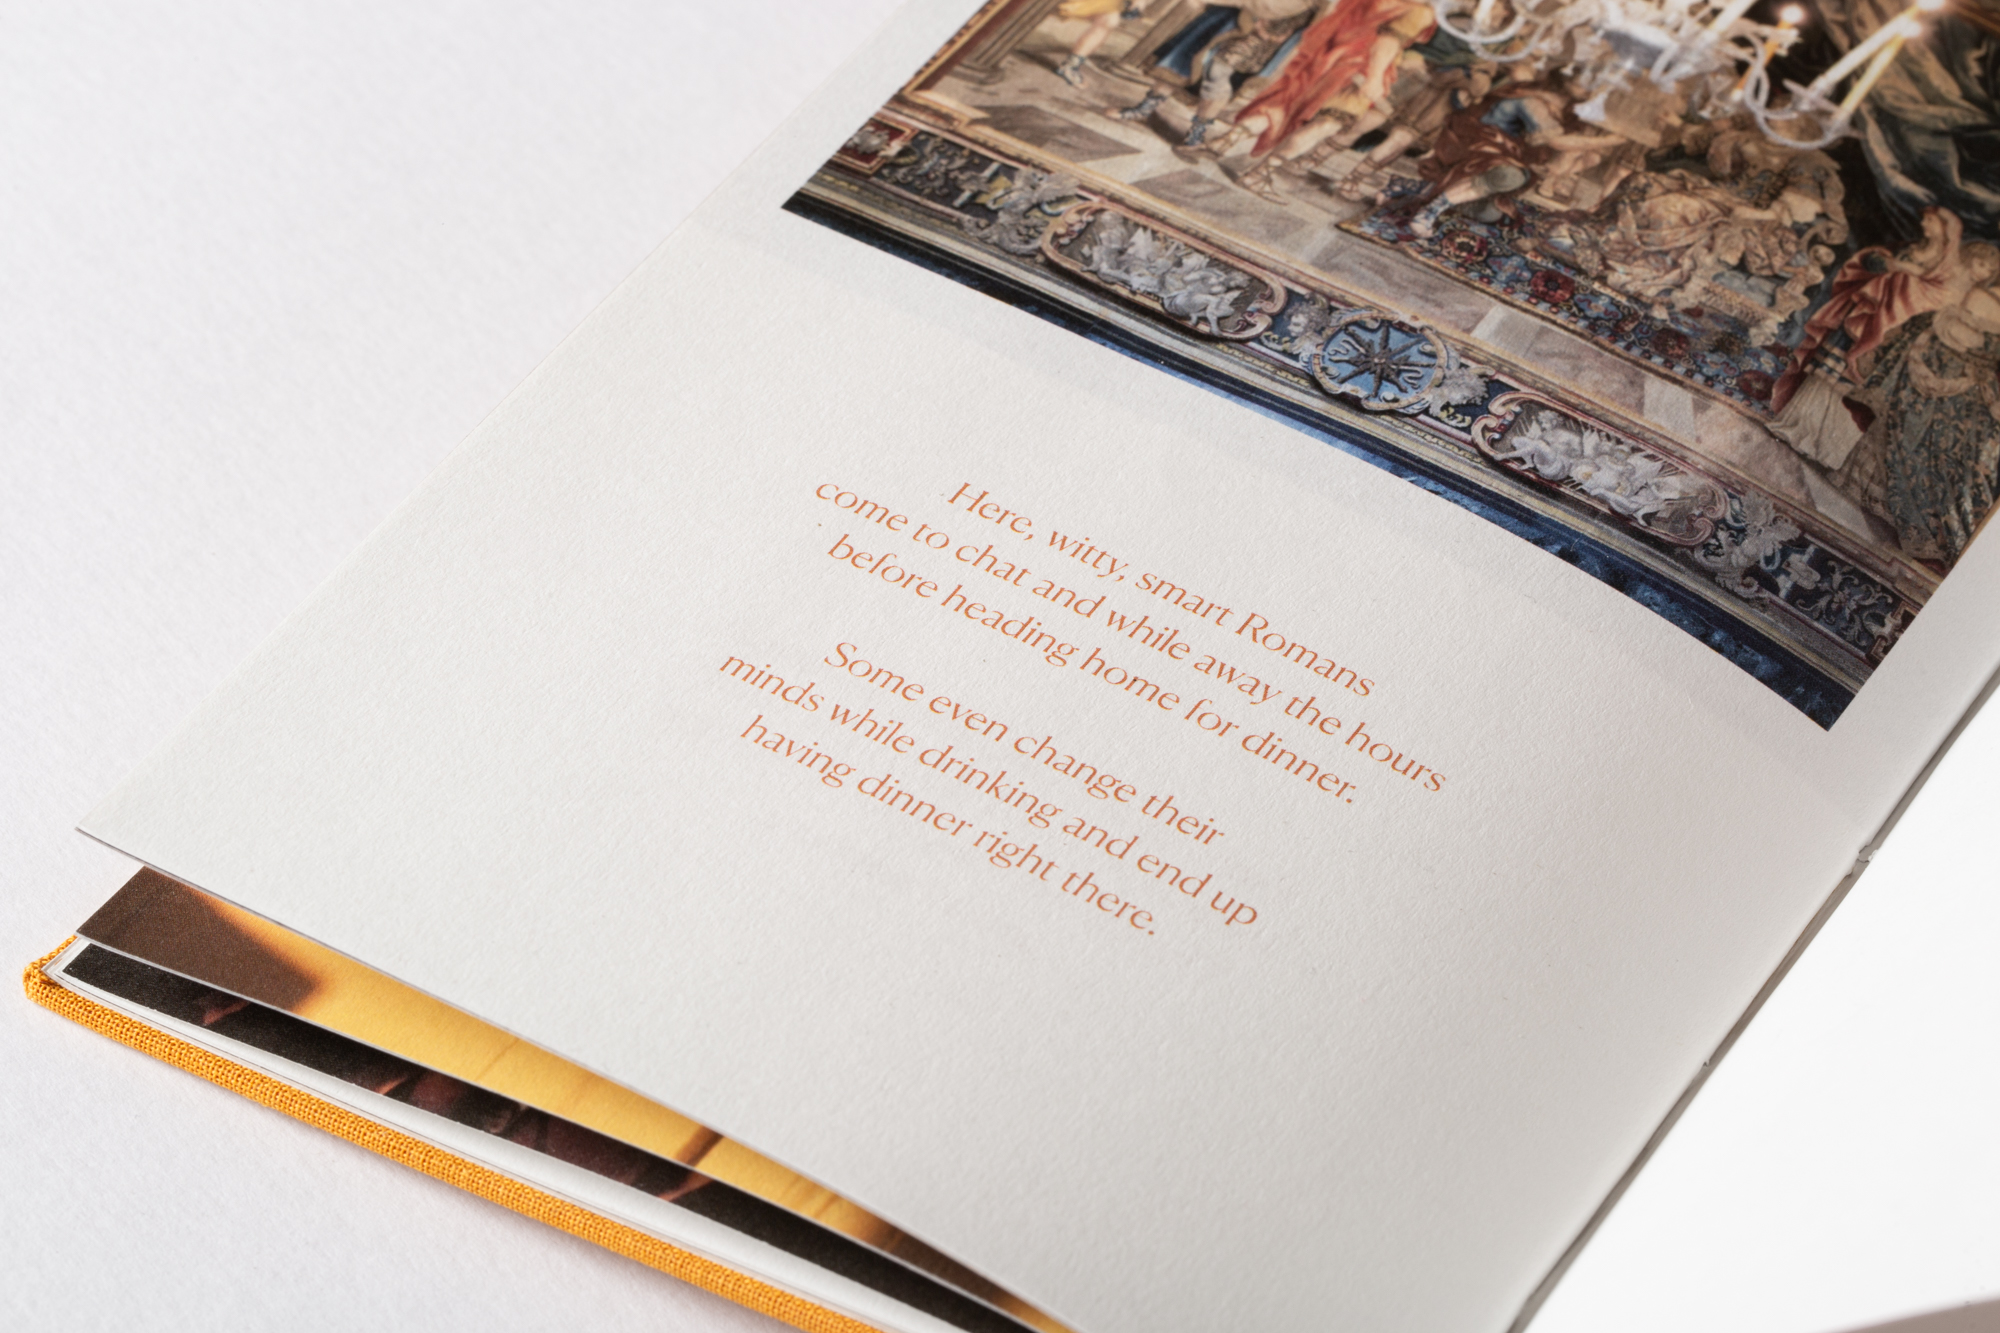 Here, witty, smart Romans
come to chat and while away the hours
before heading home for dinner.
Some even change their
minds while drinking and end up
having dinner right there.